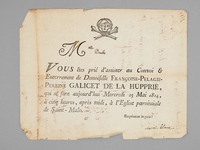 M
Vous êtes prié d'assister au Convoi &
Enterrement de Demoiselle FRANÇOISE-PELAGIE-
PERRINE GALICET DE LA HUPPRIE,
qui se fera aujourd'hui Mercredi 25 Mai 1814,
à cinq heures, après midi, à l'Eglise paroissiale
de Saint-Malo.